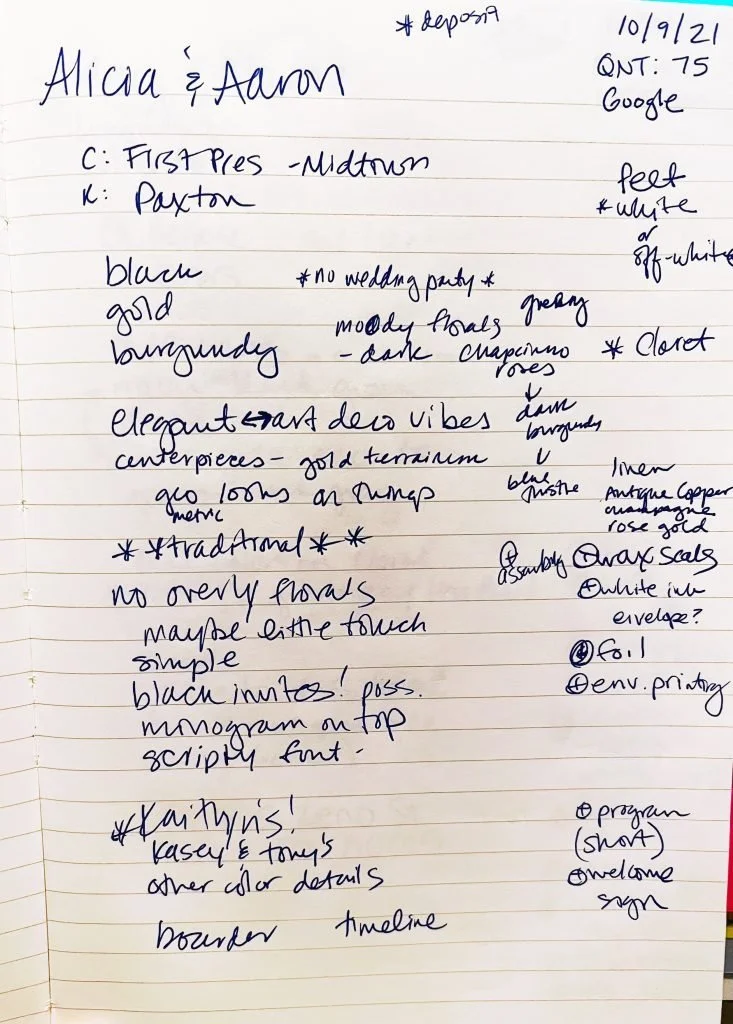 *deposit
10/9/21
Alicia & Aaron
QNT: 75
Google
C: First Pres - Midtown
R: Paxton
felt
*white
or
off-white
black
*no wedding party*
gold
moody florals
greeny
burgundy
- dark chapcinno
roses
* Claret
↓
dark
burgundy
elegant ↔ art deco vibes
centerpieces - gold terrainium
↓
blue
thistle
linen
geo looks on things
metric
Antique Copper
champagne
rose gold
**traditional**
⊕
assembly
⊕wax seals
no overly florals
⊕white ink
envelope?
maybe little touch
simple
⊕foil
black invites! poss.
⊕env. printing
monogram on top
scripty font -
*Kaitlyn's!
⊕program
(short)
Kasey & Tony's
other color details
⊕welcome
sign
boarder timeline